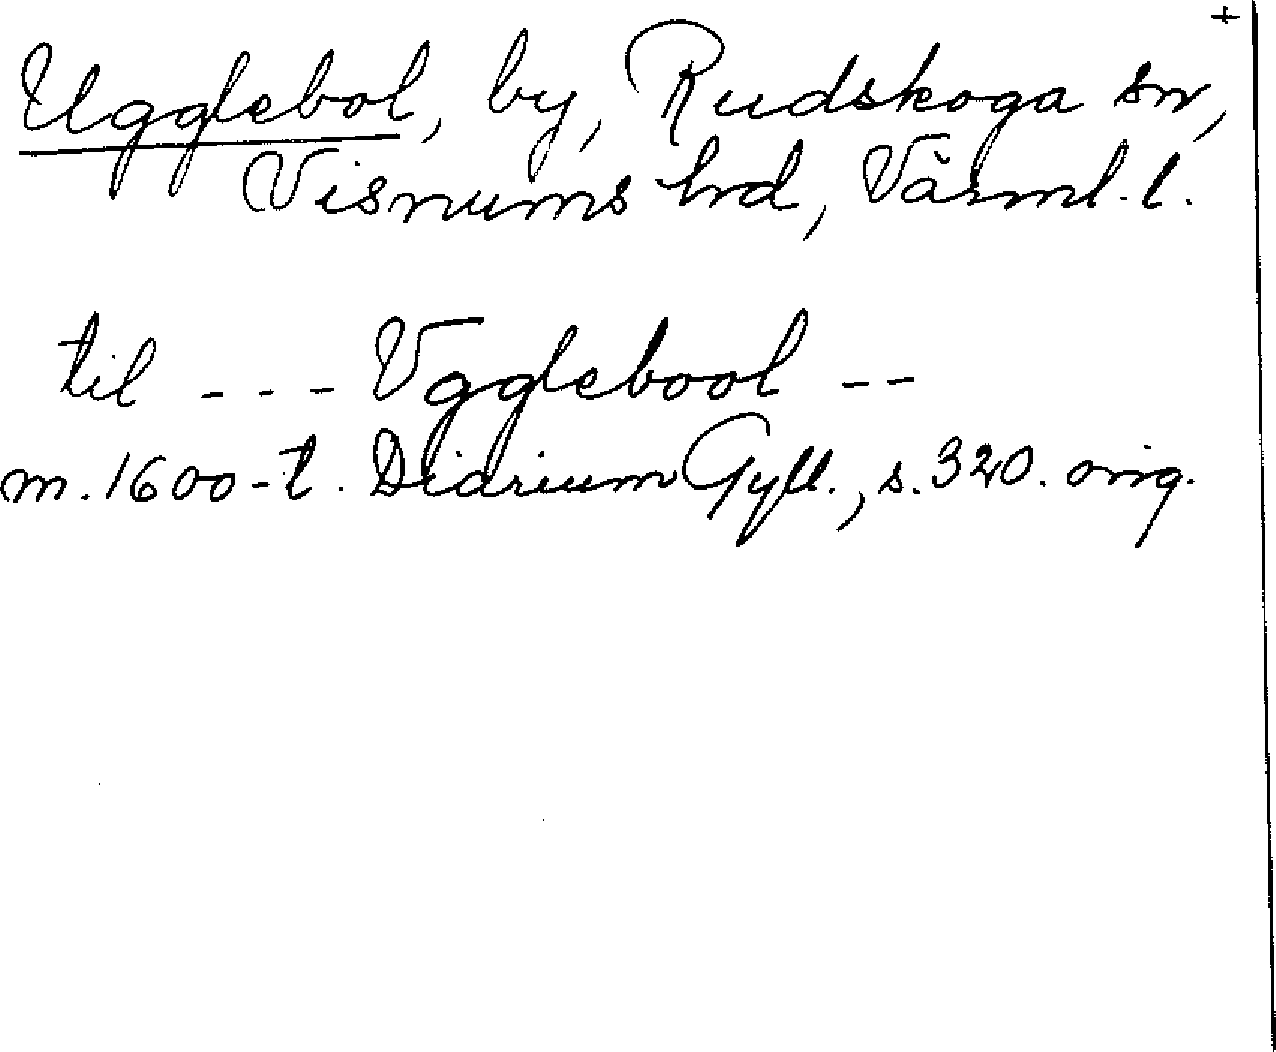 +
Ugglebol, by, Rudskoga sn,
Visnums hrd, Värml. l.
til - - - Vgglebool - -
m. 1600-t. Diarium Gyll., s. 320. orig.